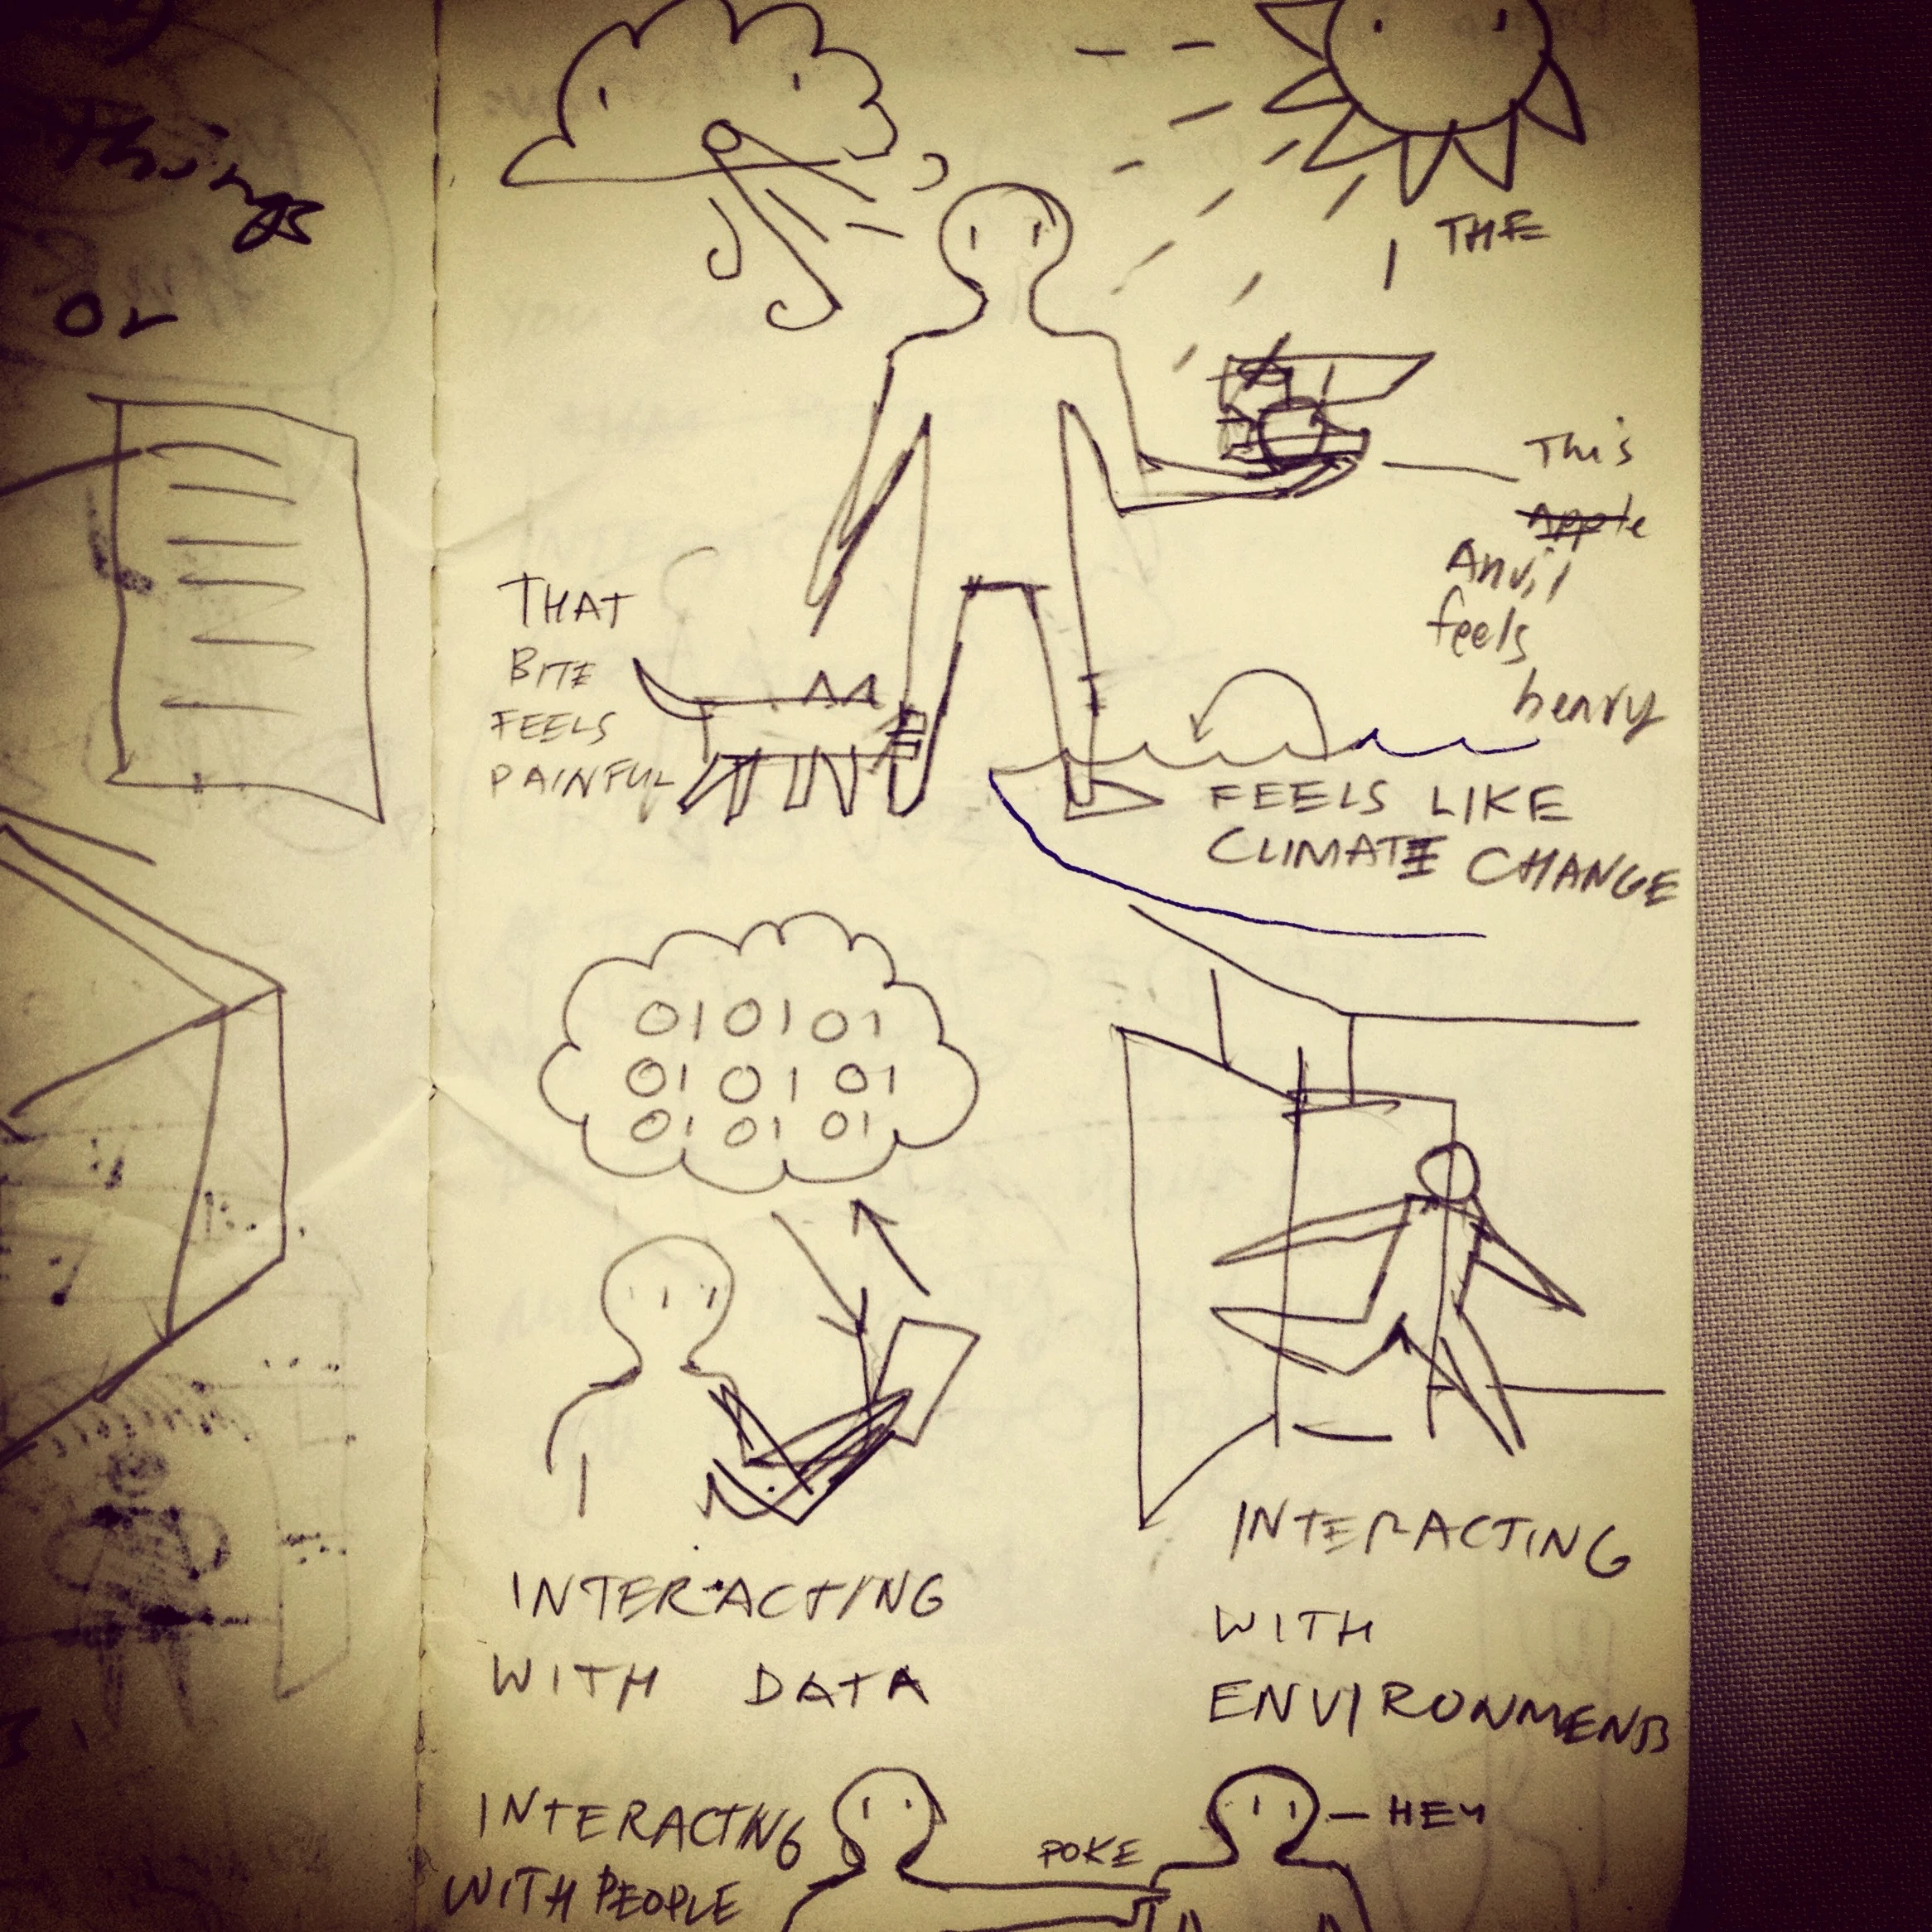 Things
or
THE
This
apple
Anvil
feels
heavy
THAT
BITE
FEELS
PAINFUL
FEELS LIKE
CLIMATE CHANGE
010101
010101
010101
INTERACTING
WITH DATA
INTERACTING
WITH
ENVIRONMENTS
INTERACTING
WITH PEOPLE
POKE
HEY